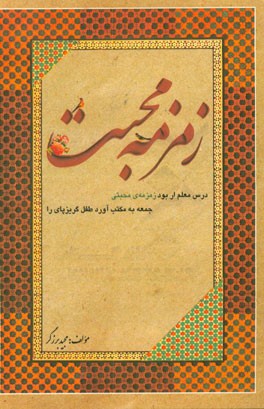 زمزمه محبت
درس معلم ار بود زمزمه‌ی محبتی
جمعه به مکتب آورد طفل گریزپای را
مؤلف: مجید برزگر